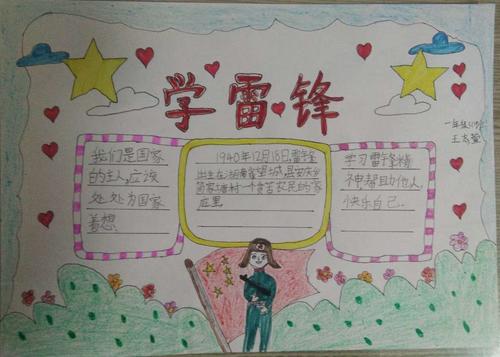 学雷锋
一年级
王
我们是国家
的主人,应该
处处为国家
着想.
1940年12月18日,雷锋
出生在湖南省望城,县安庆乡
简家塘村一个贫苦农民的家
庭里.
学习雷锋精
神帮助他人,
快乐自己.